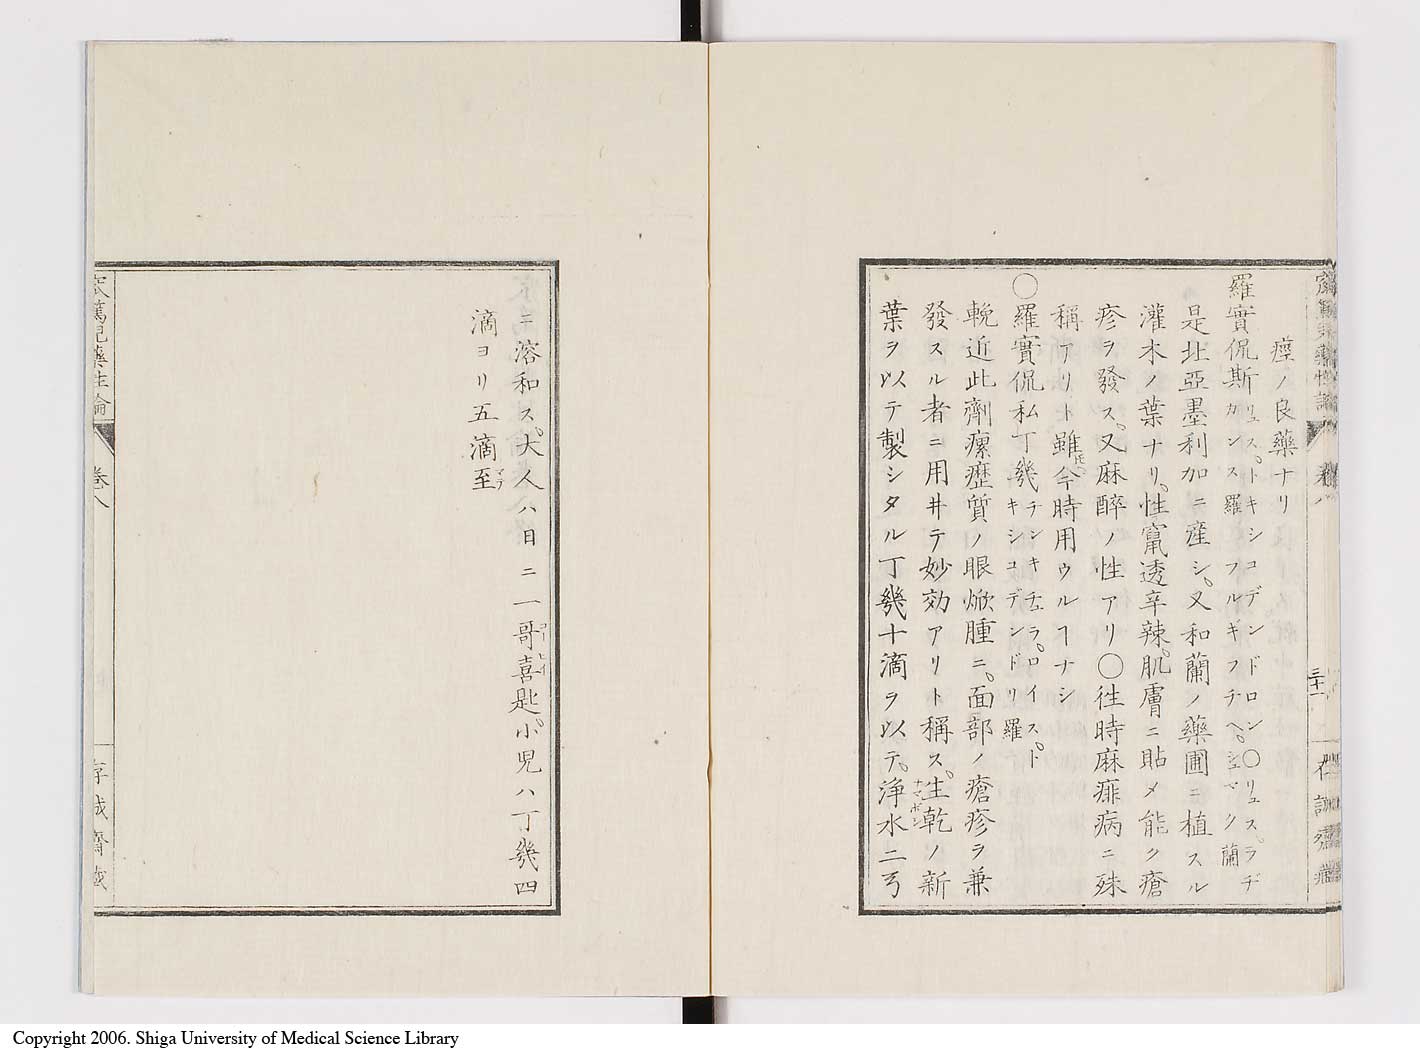 痙ノ良藥ナリ
羅實侃斯 リュス。トキシコデンドロン〇リュス。ラヂ
カンス羅 フルギフチヘ。シュマク蘭
是北亞墨利加ニ産シ。又和蘭ノ藥圃ニ植スル
灌木ノ葉ナリ。性竄透辛辣。肌膚ニ貼メ能ク瘡
疹ヲ發ス。又麻醉ノ性アリ〇徃時麻痱病ニ殊
稱アリト雖𪜈。今時用ウルヿナシ
〇羅實侃私丁幾 チンキチュラ。ロイス。ト
キシコデンドリ羅
輓近此劑瘰癧質ノ眼焮腫ニ。面部ノ瘡疹ヲ兼
發スル者ニ用井テ妙効アリト稱ス。生乾ノ新
ナマボシ
葉ヲ以テ製シタル丁幾十滴ヲ以テ。浄水二弓
ニ溶和ス。大人ハ日ニ一哥喜匙。小児ハ丁幾四
滴ヨリ五滴至
マデ
窊篤児藥性論 卷八
存誠齋藏
三十一
Copyright 2006. Shiga University of Medical Science Library